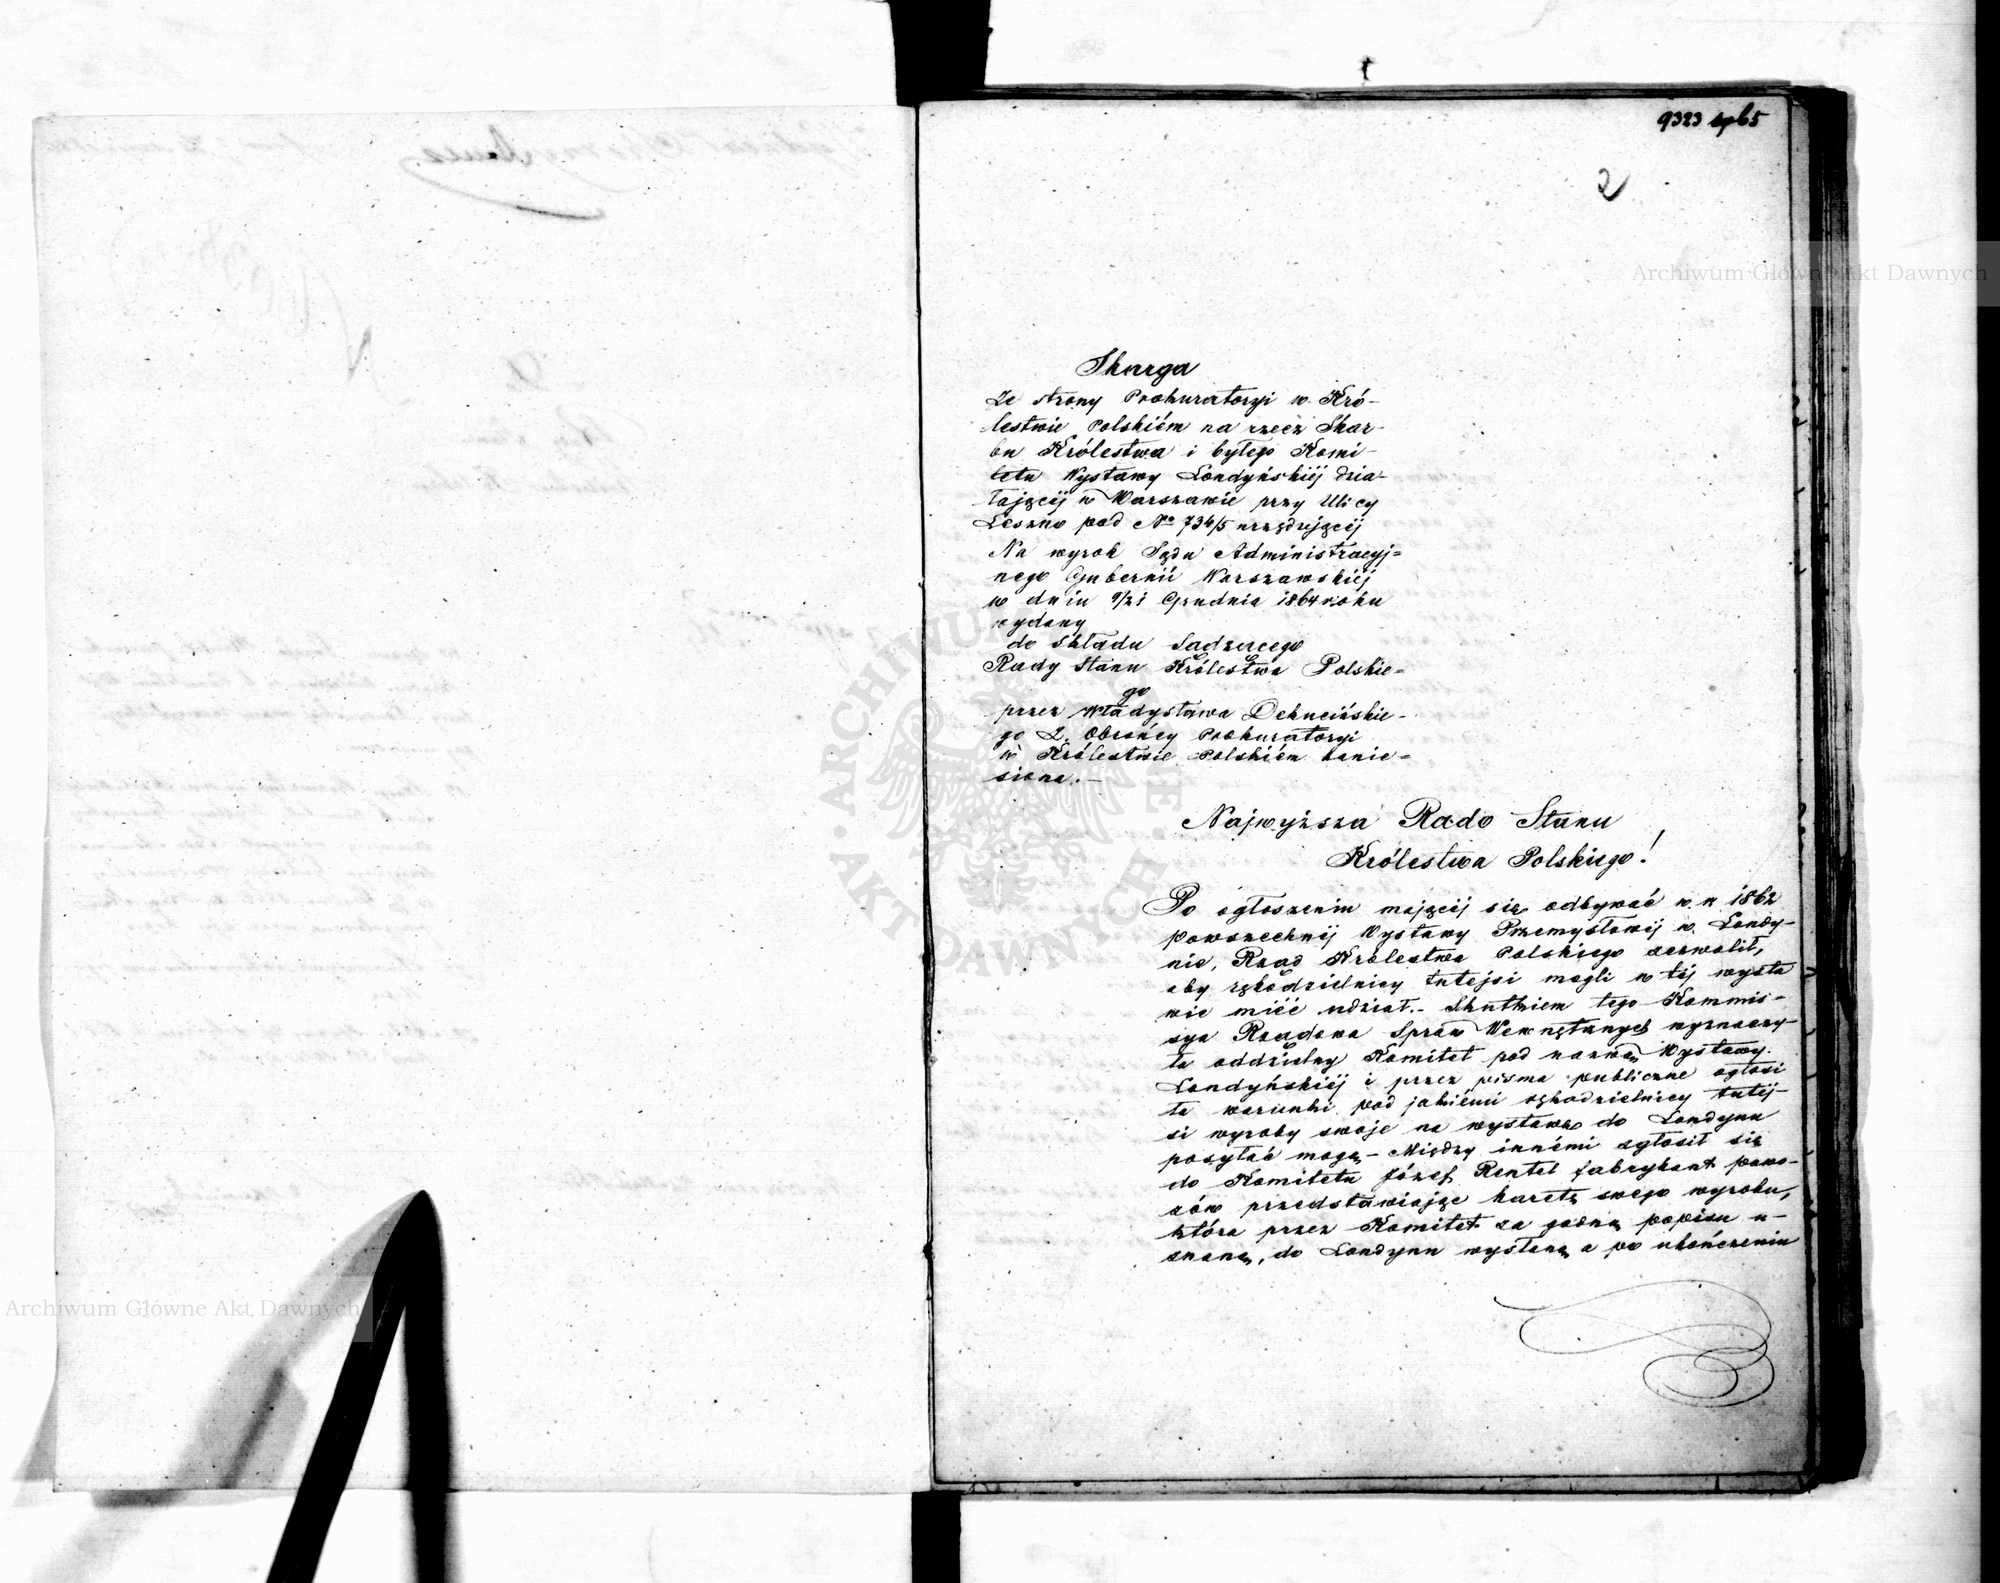 9323 65
2
Skarga
Ze strony Prokuratoryi w Kró-
lestwie Polskiém na rzecz Skar-
bu Królestwa i byłego Komi-
tetu Wystawy Londyńskiéj dzia-
łającéj w Warszawie przy Ulicy
Leszno pod No 734/5 urzędującéj
Na wyrok Sądu Administracyj=
nego Gubernii Warszawskiéj
w dniu 9/21 Grudnia 1864 roku
wydany
do Składu Sądzącego
Rady Stanu Królestwa Polskie=
go
przez Władysława
go Z. Obrońcy Prokuratoryi
w Królestwie Polskiém zanie=
siona.—
Najwyższa Rado Stanu
Królestwa Polskiego!
Po ogłoszeniu mającéj się odbywać w r. 1862
powszechnéj Wystawy Przemysłowéj w Londy-
nie, Rząd Królestwa Polskiego zezwolił,
aby rękodzielnicy tutejsi mogli w téj wysta
wie mieć udział.- Skutkiem tego Kommis-
sya Rządowa Spraw Wewnętrznych wyznaczy-
ła oddzielny Komitet pod nazwą Wystawy
Londyńskiéj i przez pisma publiczne ogłosi
ła warunki pod jakiémi rękodzielnicy tutéj-
si wyroby swoje na wystawę do Londynu
posyłać mogą- Między innémi zgłosił się
do Komitetu Józef Rentel fabrykant powo-
zów przedstawiając karetę swego wyrobu,
która przez Komitet za godną popisu u-
znaną, do Londynu wysłaną a po ukończeniu
Archiwum Główne Akt Dawnych
Archiwum Główne Akt Dawnych
ARCHIWUM GŁÓWNE AKT DAWNYCH